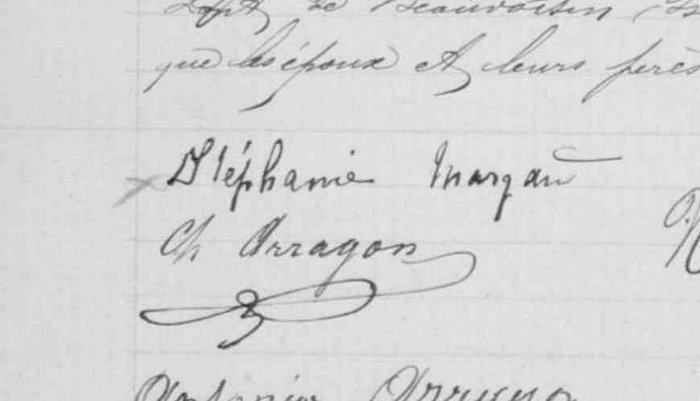 de Beauvoisin
que les époux et leurs pères
Stéphanie Margan
Ch Arragon